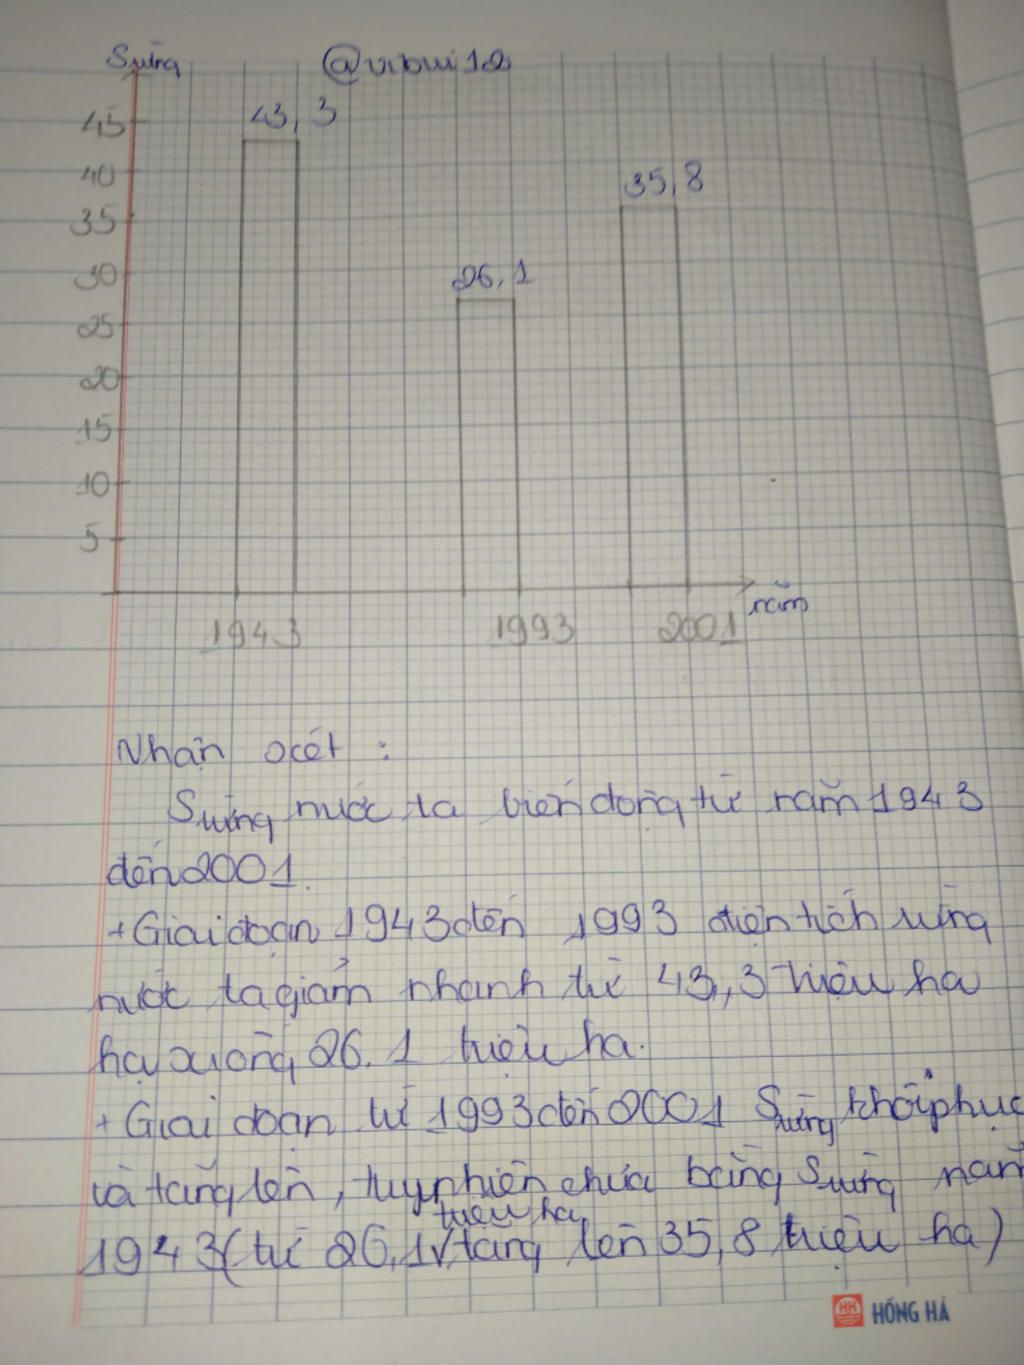 S rừng
@vibui12
45
43,3
40
35,8
35
30
26,1
25
20
15
10
5
năm
1943
1993
2001
Nhận xét :
S rừng nước ta biến động từ năm 1943
đến 2001.
+ Giai đoạn 1943 đến 1993 diện tích rừng
nước ta giảm nhanh từ 43,3 triệu ha
hạ xuống 26.1 triệu ha.
+ Giai đoạn từ 1993 đến 2001 S rừng khôi phục
và tăng lên, tuy nhiên chưa bằng S rừng năm
triệu ha
1943 (từ 26,1 √ tăng lên 35,8 triệu ha)
HH HỒNG HÀ